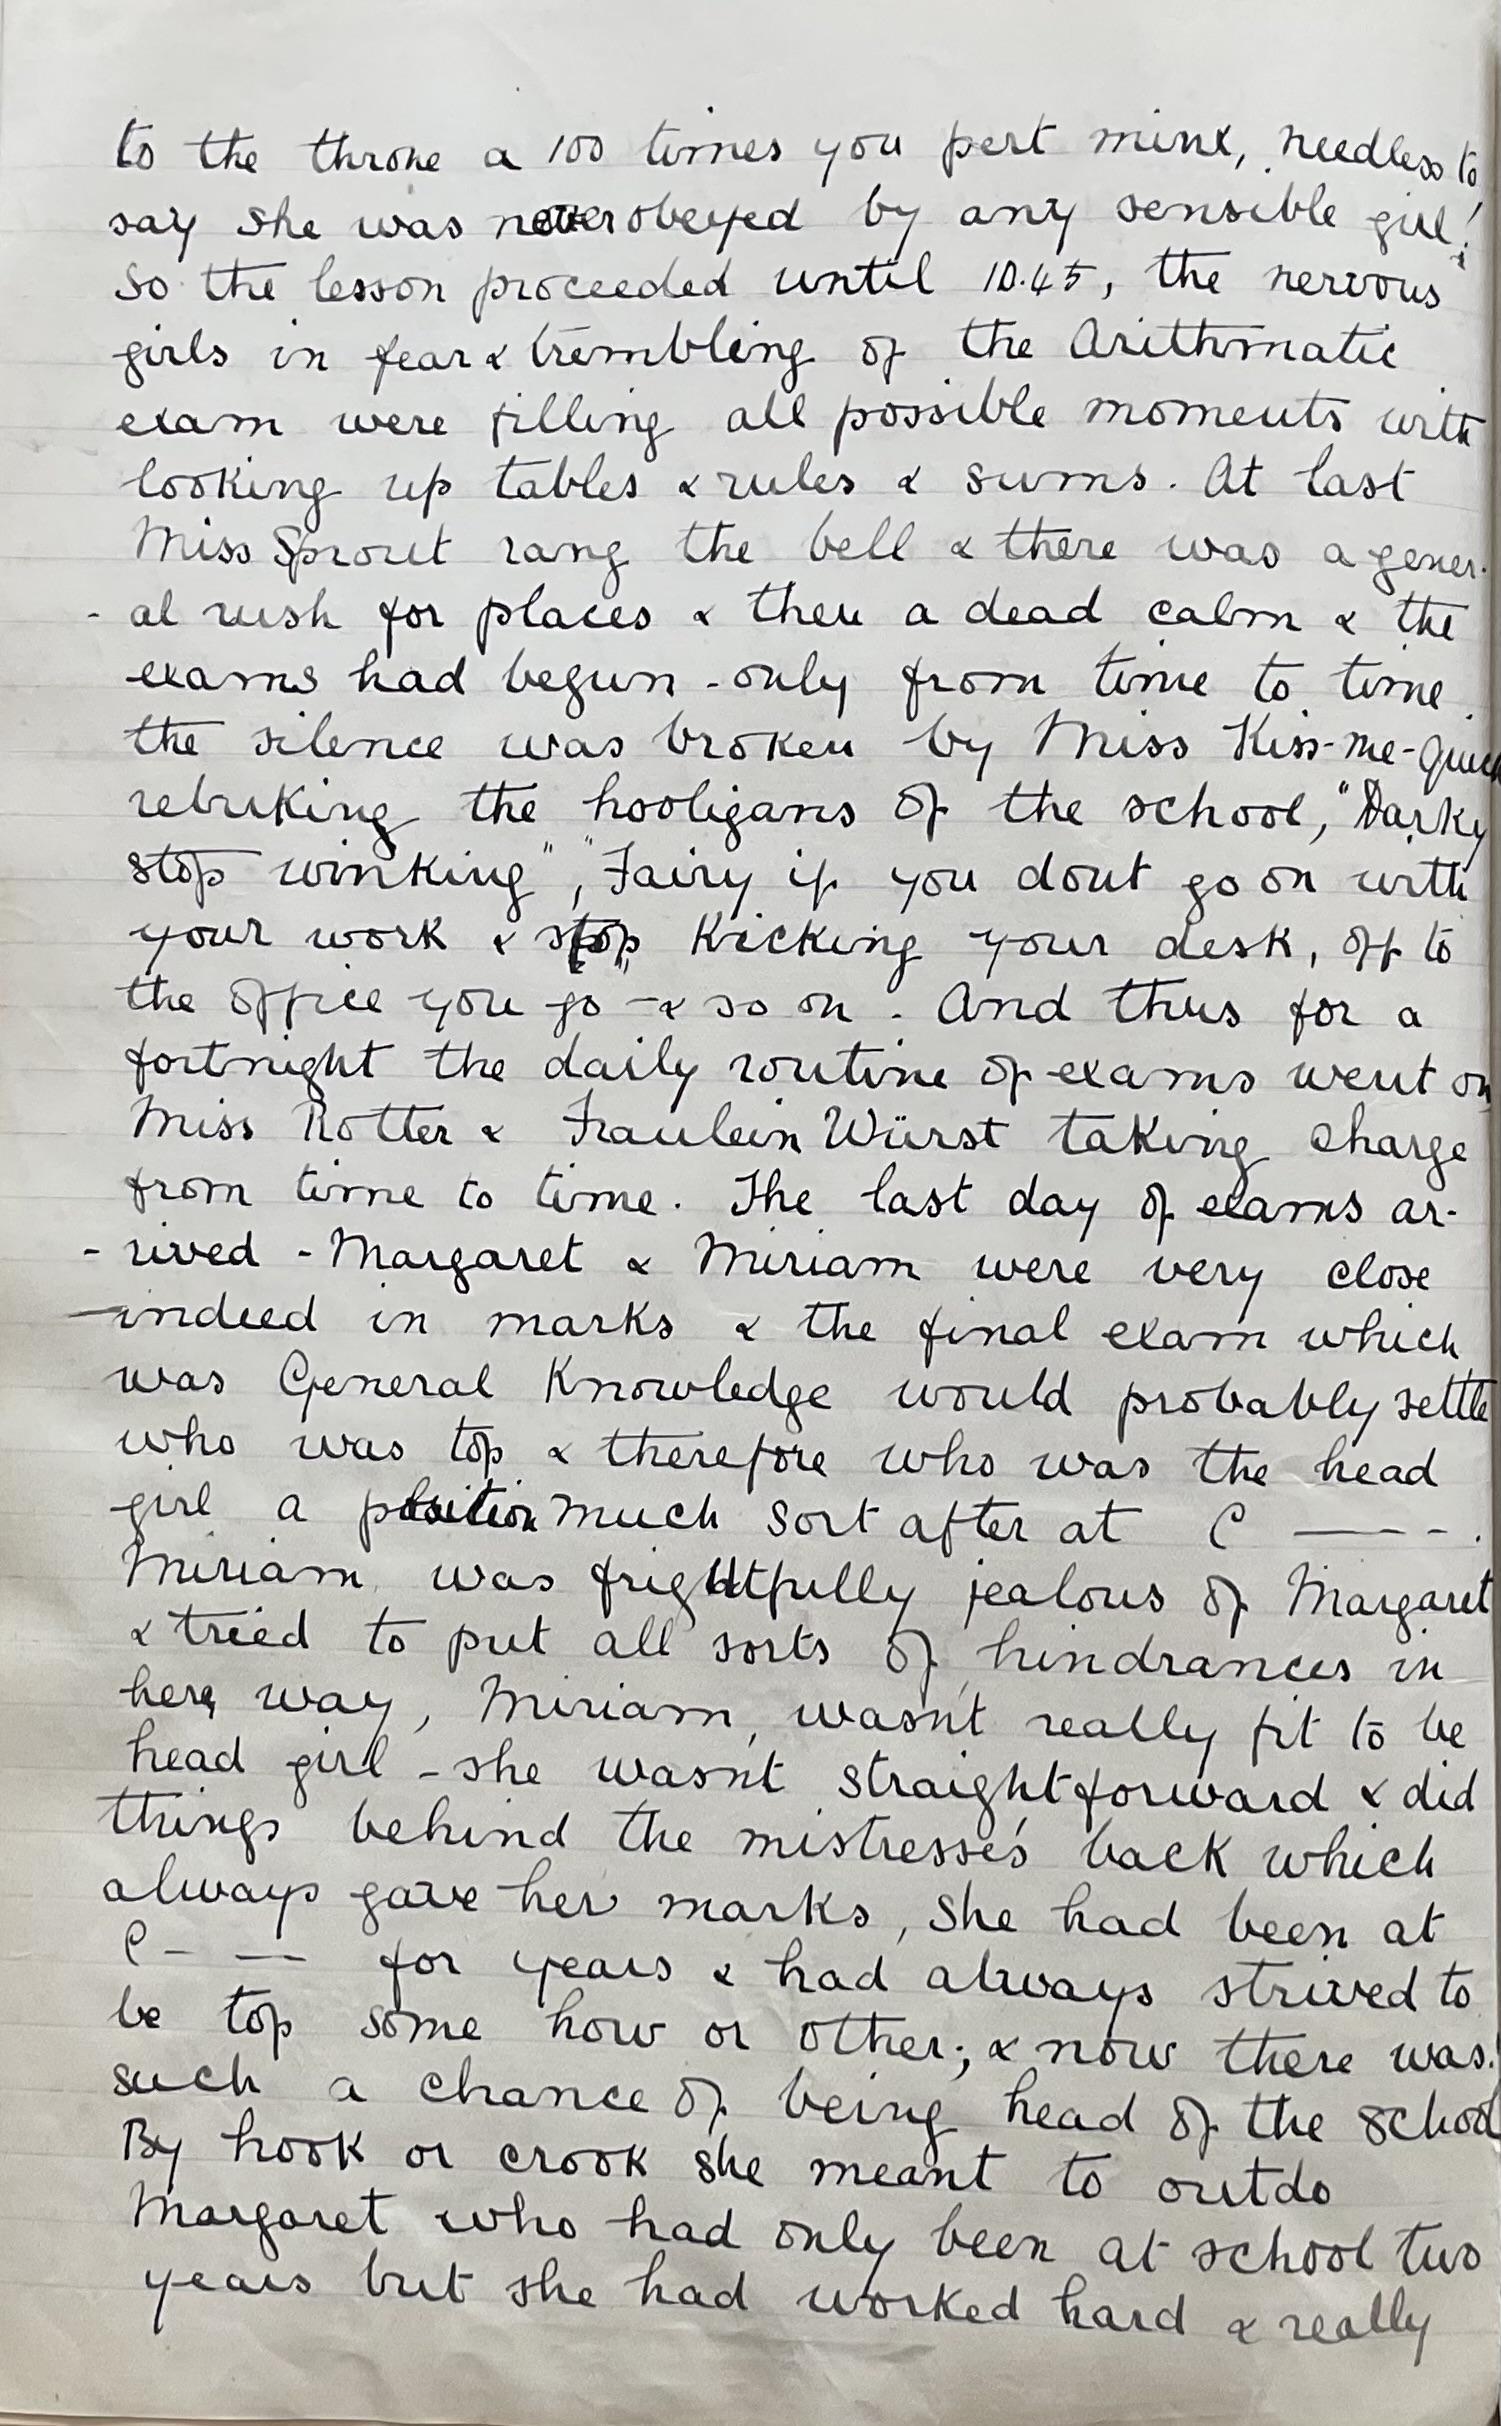 to the throne a 100 times you pert minx, needless to
say she was never obeyed by any sensible girl!
So the lesson proceeded until 10.45, the nervous
girls in fear & trembling of the Arithmatic
exam were filling all possible moments with
looking up tables & rules & sums. At last
Miss Sprout rang the bell & there was a gener-
- al rush for places & then a dead calm & the
exams had begun - only from time to time
the silence was broken by Miss Kiss-me-quick
rebuking the hooligans of the school, "Darky
stop winking", "Fairy if you dont go on with
your work & stop kicking your desk, off to
the office you go" - & so on. And thus for a
fortnight the daily routine of exams went on
Miss Rotter & Fraulein Würst taking charge
from time to time. The last day of exams ar-
- rived - Margaret & Miriam were very close
indeed in marks & the final exam which
was General Knowledge would probably settle
who was top & therefore who was the head
girl a position much sort after at C ----.
Miriam was frightfully jealous of Margaret
& tried to put all sorts of hindrances in
her way, Miriam, wasn't really fit to be
head girl - she wasn't straightforward & did
things behind the mistresses' back which
always gave her marks, She had been at
C - -- for years & had always strived to
be top some how or other; & now there was
such a chance of being head of the school
By hook or crook she meant to outdo
Margaret who had only been at school two
years but she had worked hard & really